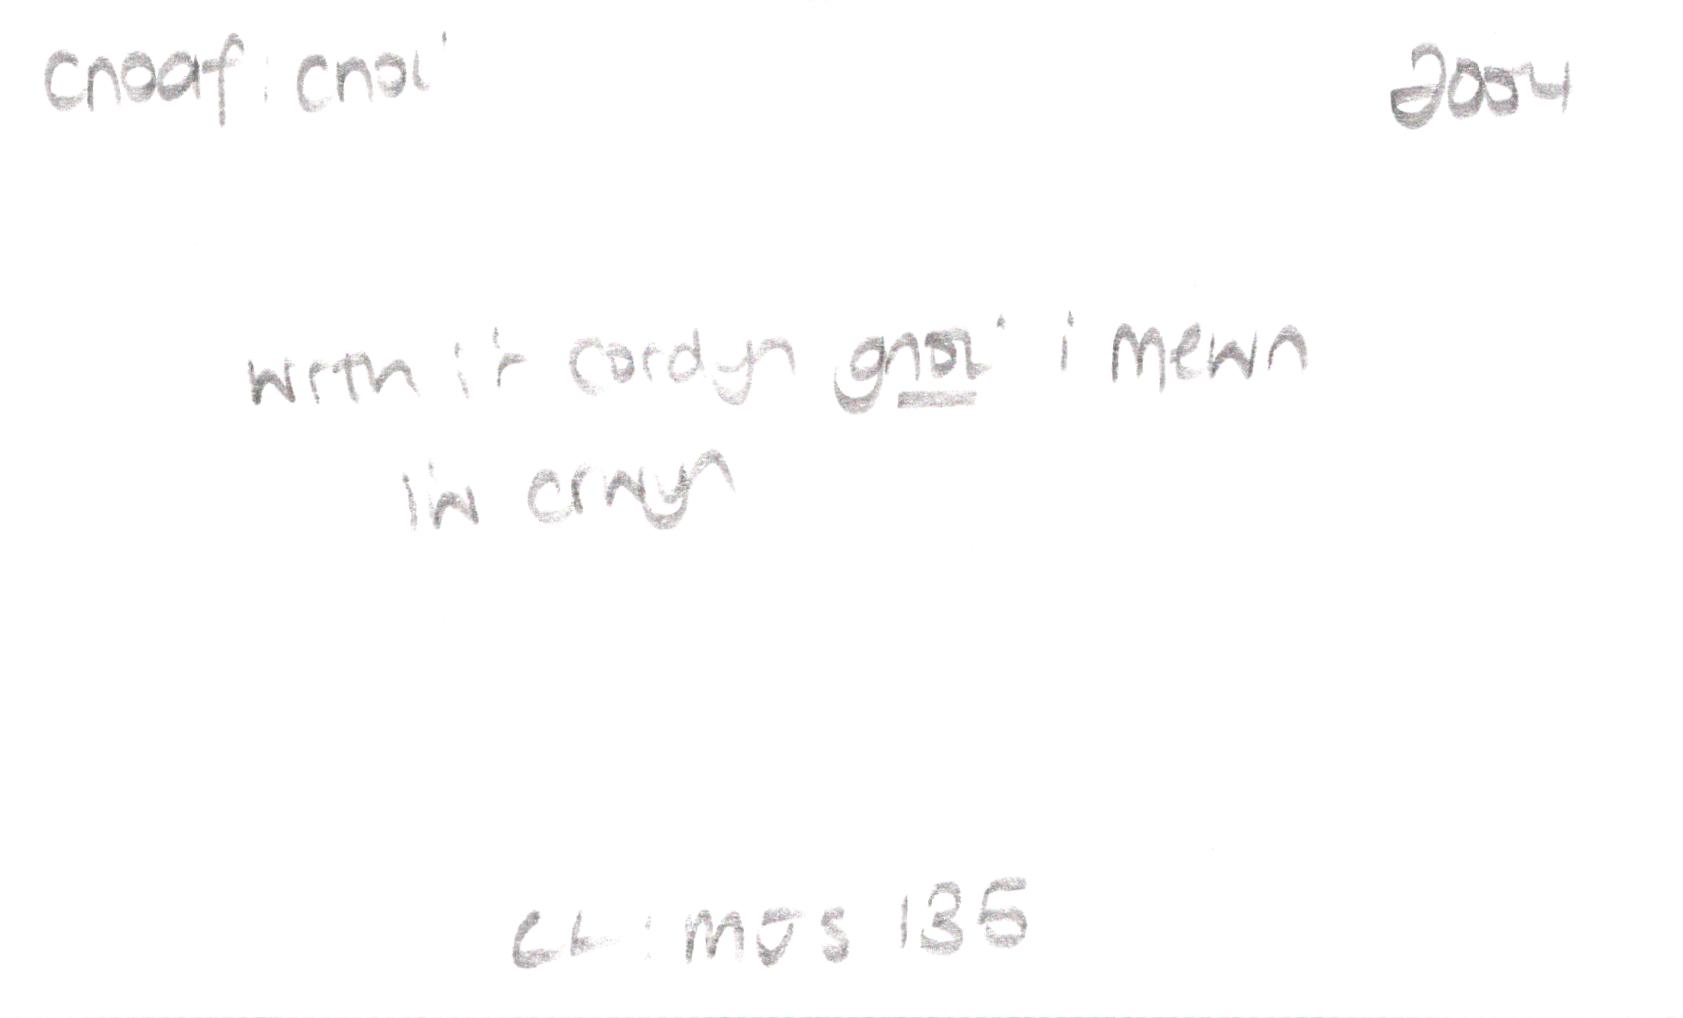 cnoaf: cnoi 2004
wrth i'r cordyn gnoi i mewn
i'w crwyn
CL: MJS 135